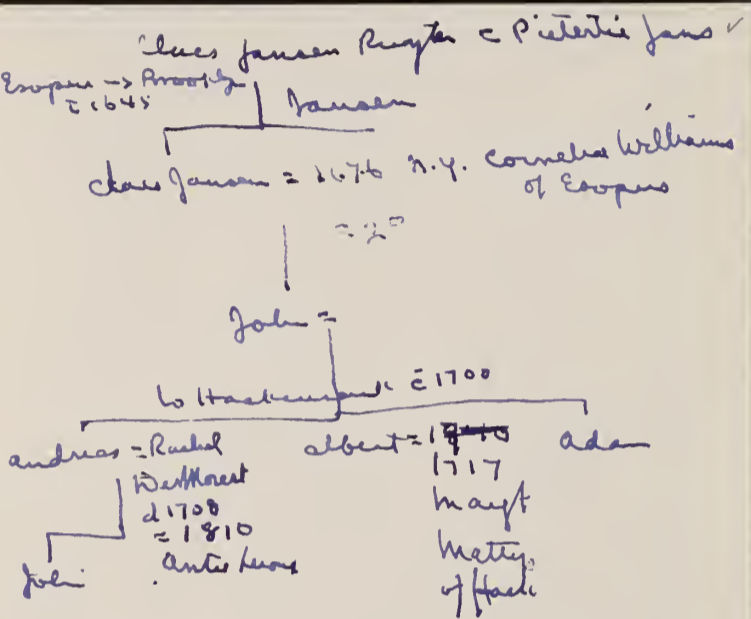 Claes Jansen Ruyter = Pietertie Jans
Esopus -> Brooklyn
c 1645
Jansen
Claes Jansen = 1676 N.Y. Cornelia Williams
of Esopus
= 2º
John =
to Hackensack c 1700
Andreas = Rachel
d 1708
= 1810
John
Albert =
1717
Mayt
Matty.
of Hack
Adam